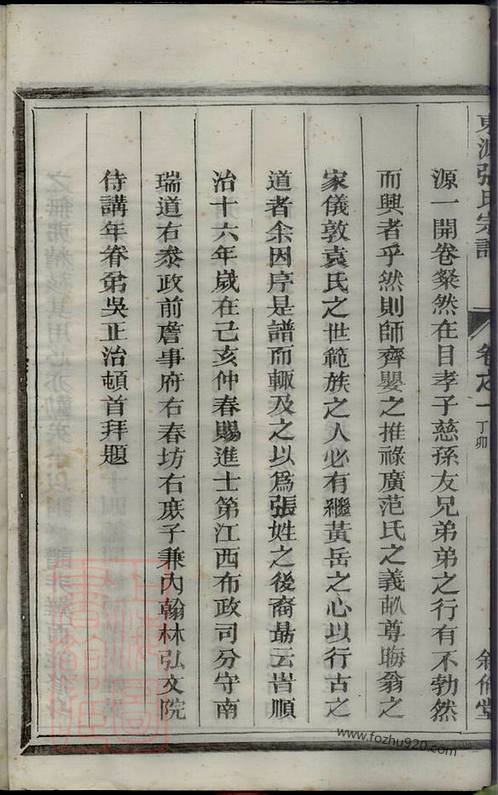 東源張氏宗譜
卷之一
丁卯
源一開卷粲然在目孝子慈孫友兄弟弟之行有不勃然
而興者乎然則師齊嬰之推祿廣范氏之義畝尊晦翁之
家儀敦袁氏之世範族之人必有繼黃岳之心以行古之
道者余因序是譜而輒及之以爲張姓之後裔勗云旹順
治十六年歲在己亥仲春賜進士第江西布政司分守南
瑞道右叅政前詹事府右春坊右庶子兼內翰林弘文院
侍講年眷弟吳正治頓首拜題
www.fozhu920.com